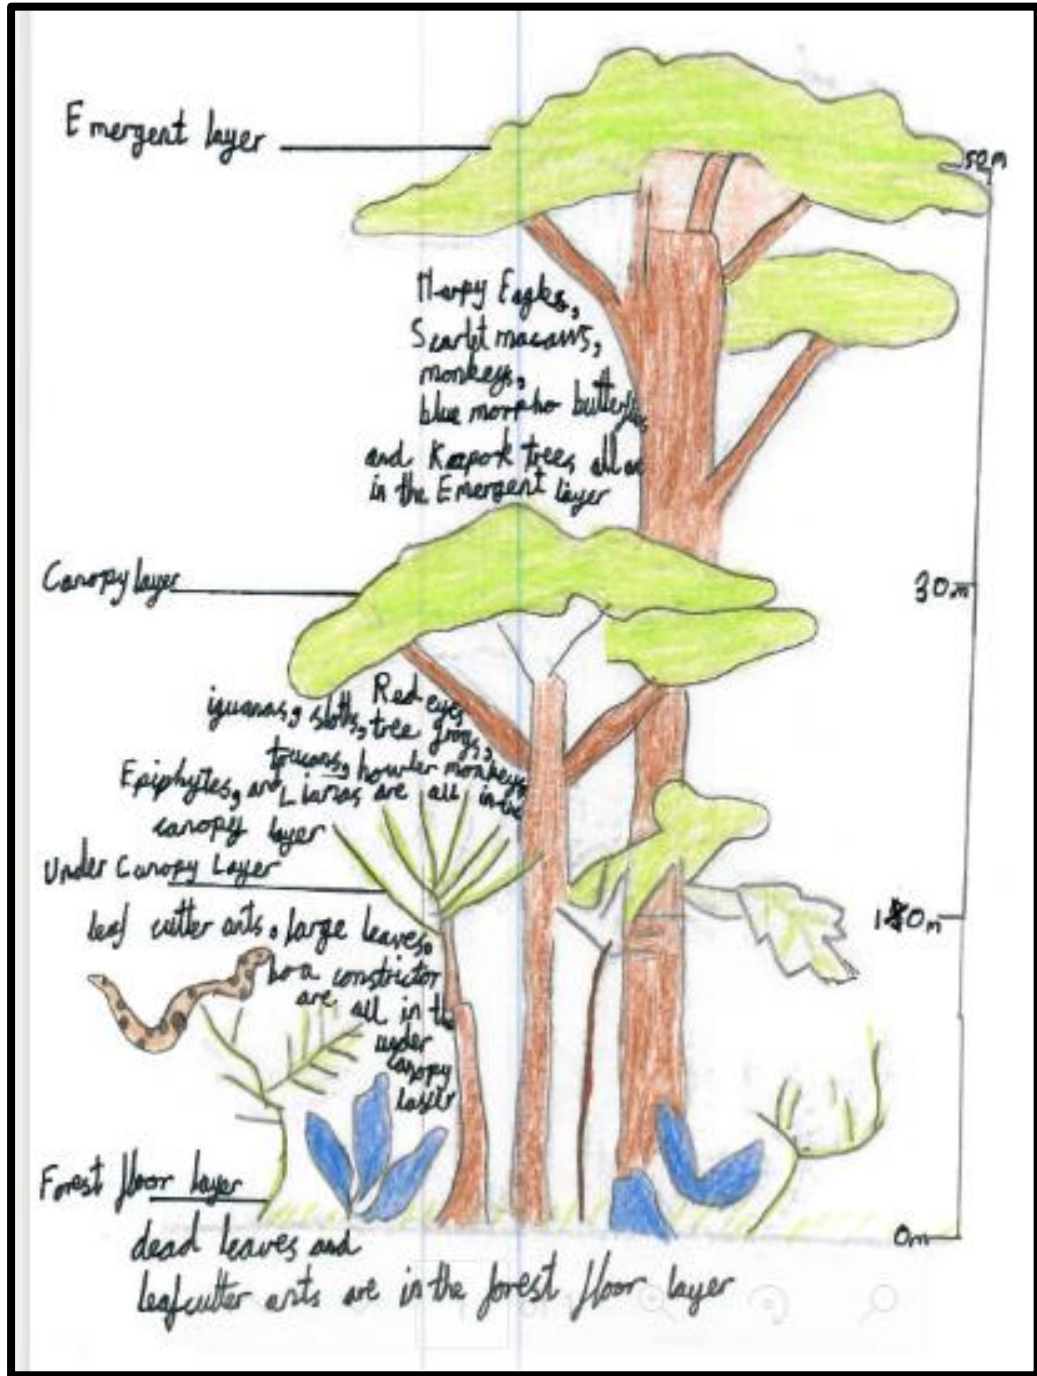 Emergent layer
50m
Harpy Eagles,
Scarlet macaws,
monkeys,
blue morpho butterflies
and Kapok trees all are
in the Emergent layer
Canopy layer
30m
Red eye
iguanas, sloths, tree frogs,
toucans, howler monkeys,
Epiphytes, and Lianas are all in the
canopy layer
Under Canopy Layer
leaf cutter ants, large leaves,
10m
boa constrictor
are all in the
under
canopy
layer
Forest floor layer
0m
dead leaves and
leafcutter ants are in the forest floor layer